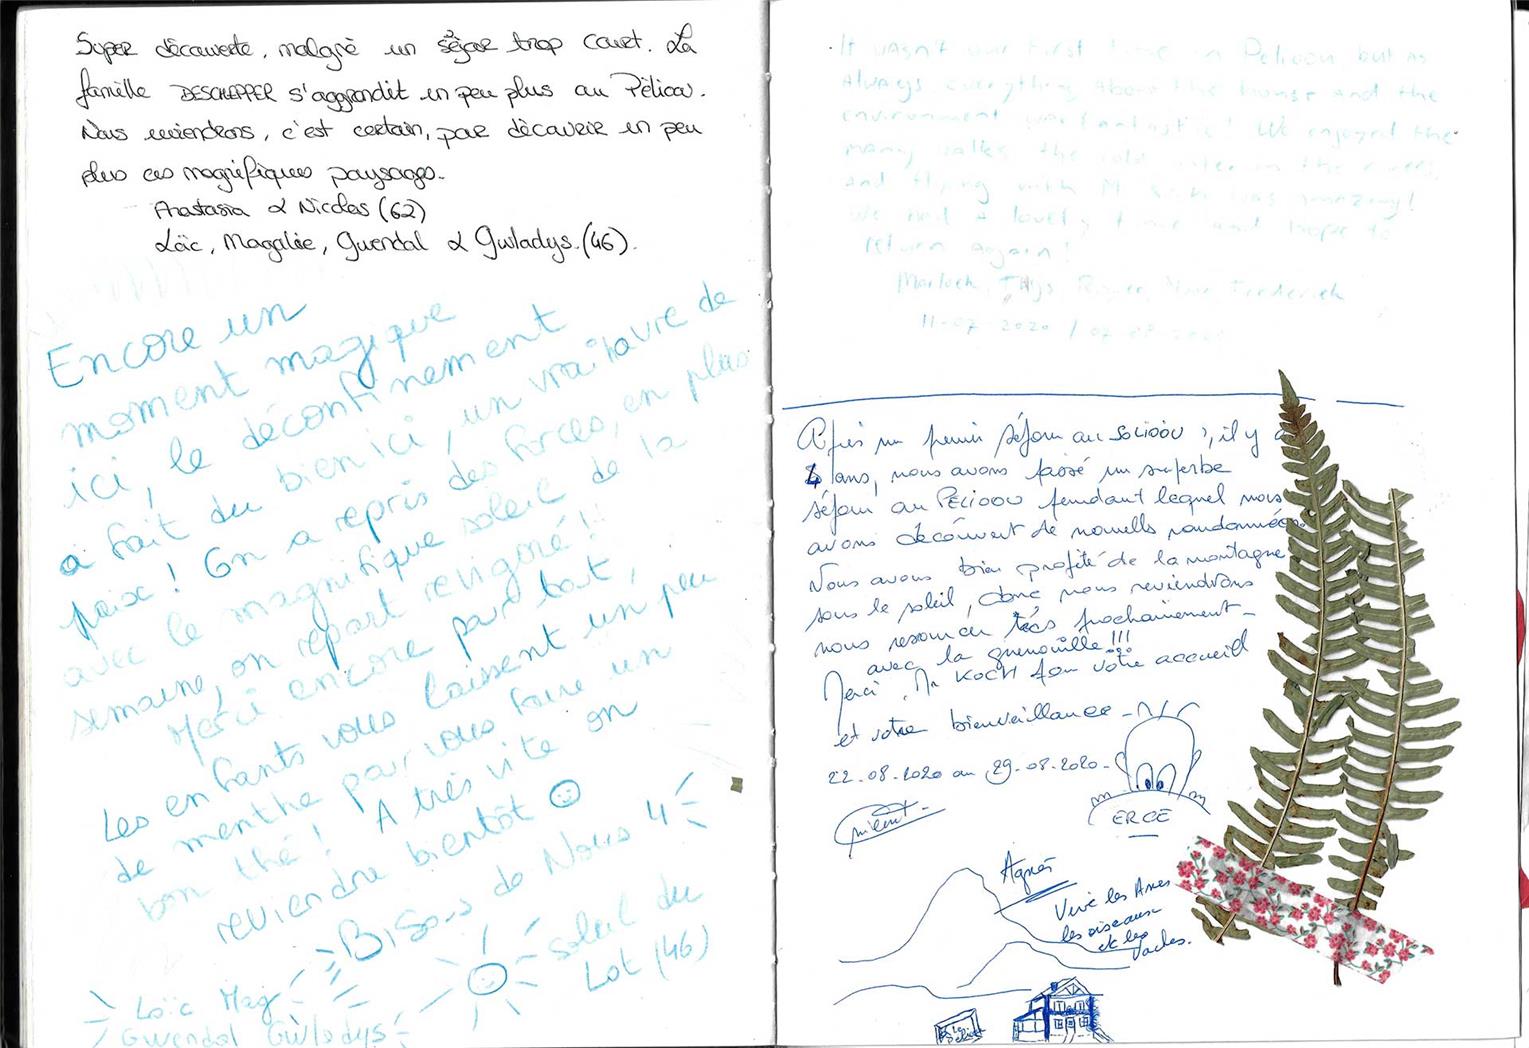 Super découverte, malgré un séjour trop court. La
famille DESCHEPPER s'aggrandit un peu plus au Pélicou.
Nous reviendrons, c'est certain, pour découvrir un peu
plus ces magnifiques paysages.
Anastasia & Nicolas (62)
Loïc, Magalie, Gwendal & Gwladys. (46).
Encore un
moment magique
ici, le déconfinement
a fait du bien ici, un vrai havre de
paix ! On a repris des forces, en plus
avec le magnifique soleil de la
semaine, on repart revigoré !!
Merci encore par tout,
Les enfants vous laissent un peu
de menthe pour vous faire un
bon thé ! A très vite on
reviendra bientôt
Bisous de Nous 4
soleil du
Lot (46)
Loïc Mag
Gwendal Gwladys
It wasn't our first time in Pelicou but as
Always everything About the house And the
environment was fantastic ! We enjoyed the
many walks the cold water in the rivers,
And flying with M was amazing!
We had A lovely time and hope to
return Again!
Thijs Frederiek
11-07-2020 / 07 08 2020
Après un premier séjour au SOLIOOU, il y a
4 ans, nous avons passé un superbe
séjour au PELIOOU pendant lequel nous
avons découvert de nouvelles randonnées.
Nous avons bien profité de la montagne
sous le soleil, donc nous reviendrons
nous ressourcer très prochainement
avec la grenouille !!!
Merci Mr KOCH pour votre accueil
et votre bienveillance
22-08-2020 au 29-08-2020
ERCE
Agnès
Vive les Anes
les oiseaux
et les
vaches.